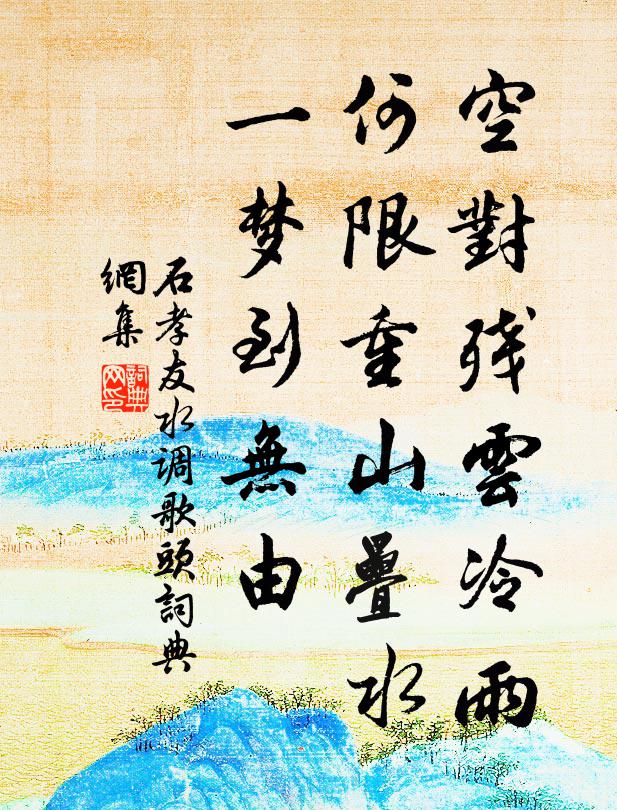 空對残雲冷雨
何限重山疊水
一梦到無由
石孝友水调歌頭詞典
網集
詞典
网印